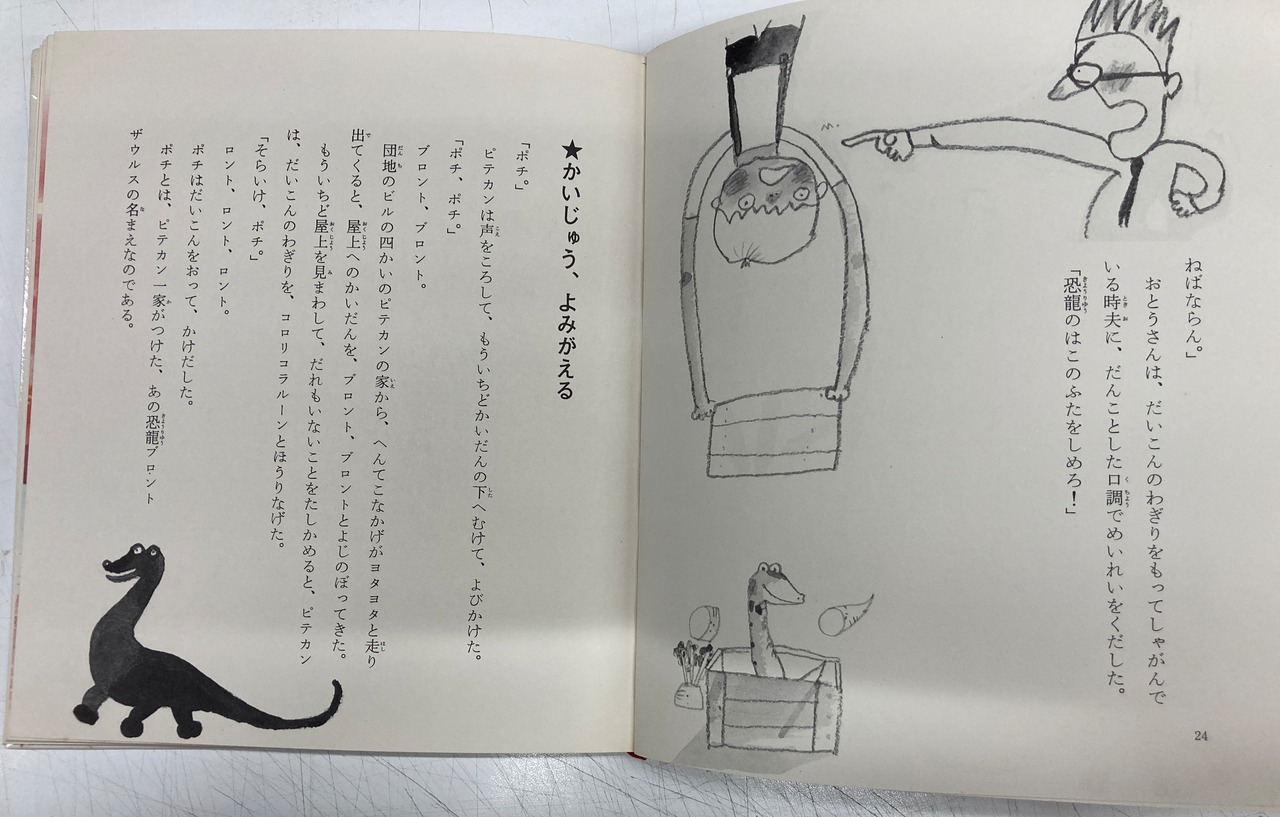 ねばならん。」
おとうさんは、だいこんのわぎりをもってしゃがんで
いる時夫に、だんことした口調でめいれいをくだした。
「恐龍のはこのふたをしめろ！」
24
★かいじゅう、よみがえる
「ポチ。」
ピテカンは声をころして、もういちどかいだんの下へむけて、よびかけた。
「ポチ、ポチ。」
ブロント、ブロント。
団地のビルの四かいのピテカンの家から、へんてこなかげがヨタヨタと走り
出てくると、屋上へのかいだんを、ブロント、ブロントとよじのぼってきた。
もういちど屋上を見まわして、だれもいないことをたしかめると、ピテカン
は、だいこんのわぎりを、コロリコラルーンとほうりなげた。
「そらいけ、ポチ。」
ロント、ロント、ロント。
ポチはだいこんをおって、かけだした。
ポチとは、ピテカン一家がつけた、あの恐龍ブロント
ザウルスの名まえなのである。